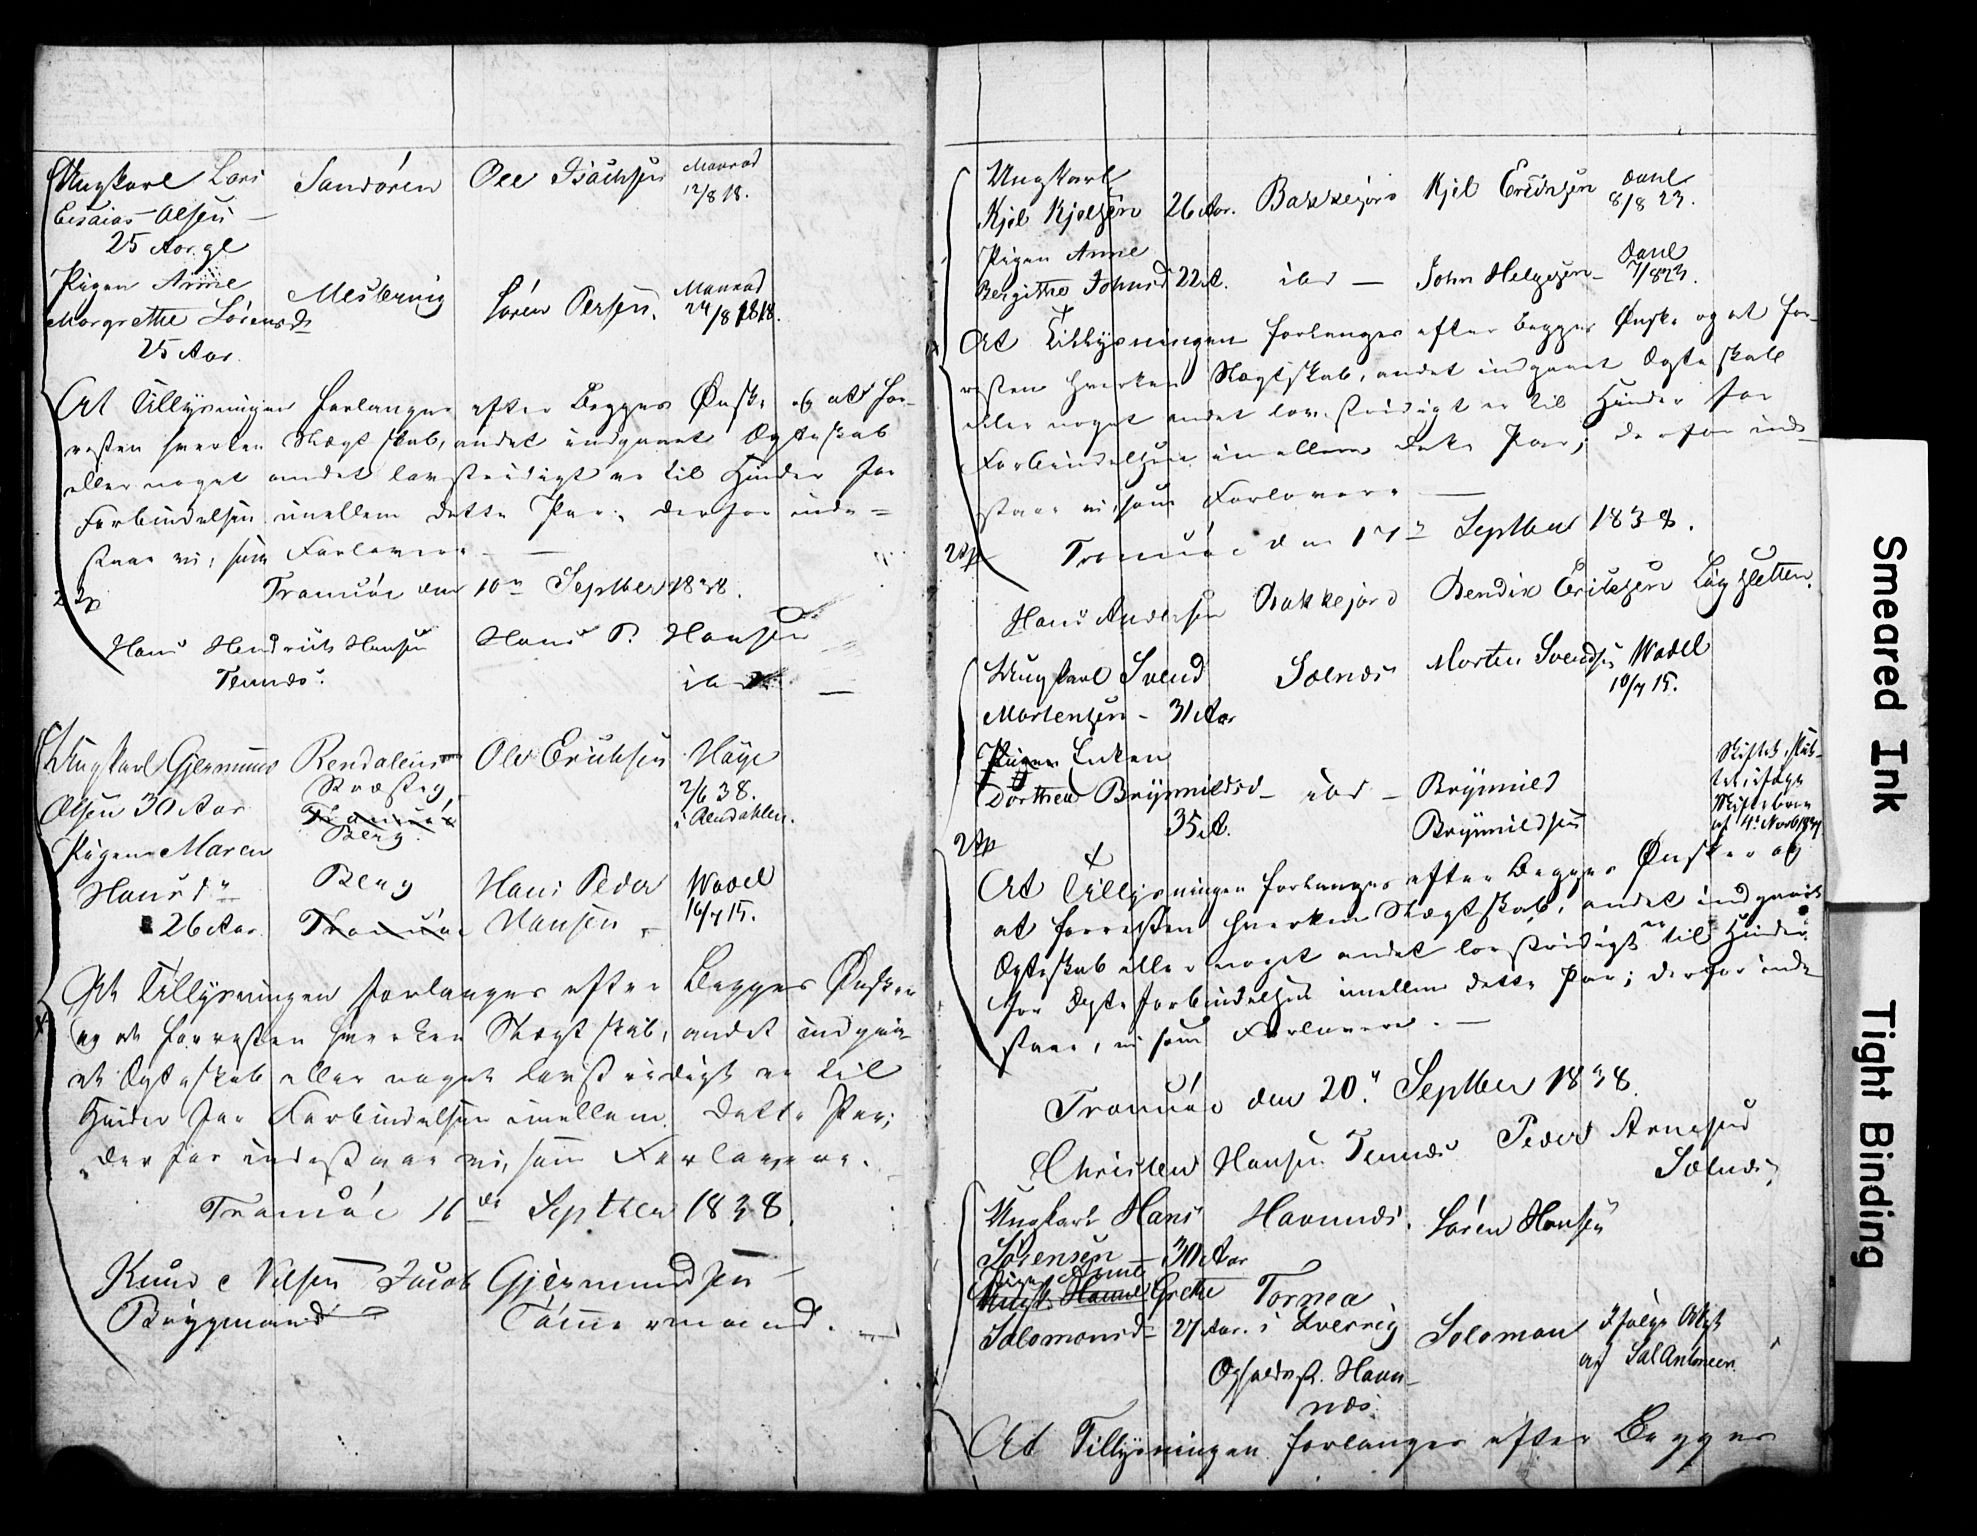 Ungkarl Lars
Esaias Olsen —
25 Aar gl
Sandören
Ole Isachsen
12/8 18.
Pigen Anne
Margrethe Sörensd
25 Aar.
Mestervig
Sören Persen.
24/8 1818.
At Tillysningen forlanges efter Begges Önske og at for-
resten hverken Slægtskab, andet indgaaet Ægteskab
eller noget andet lovstridigt er til Hinder for
Forbindelsen imellem dette Par, derfor inde=
staae vi, som Forlovere —
Tromsöe den 10de Septbr 1838.
Hans Hendrich Hansen
Hans P. Hansen
ibd —
Ungkarl Gjermund
Olsen 30 Aar
Rendalens
Præstg
Tromsöe
Berg
Ole Erichsen
Höye
2/6 38.
i Rendahlen.
Pigen Maren
Hansdr
26 Aar.
Berg
Tromsöe
Hans Peder
Hansen
Wadel
16/7 15.
At Tillysningen forlanges efter Begges Önsker
og at forresten hverken Slægtskab, andet indgaa-
et Ægteskab eller noget lovstridigt er til
Hinder for Forbindelsen imellem dette Par;
derfor indestaae vi, som Forlovere.
Tromsöe 11de Septber 1838.
Knud Nilsen Jacob Gjermundsen
Brygmand Tömmermand.
Ungkarl
Kjel Kjelsen 26 Aar.
Kjel Erichsen
8/8 23.
Pigen Anne
Bergithe Johnsd 22 A.
ibd —
John Helgesen
7/8 23.
At Tillysningen forlanges efter begges Önske og at for-
resten hverken Slægtskab, andet indgaaet Ægteskab
eller noget andet lovstridigt er til Hinder for
Forbindelsen imellem dette Par; derfor inde-
staae vi, som Forlovere —
Tromsöe den 17de Septber 1838.
Hans Andersen Bakkejord Bendix Erichsen Lögsletten.
Ungkarl Svend
Mortensen — 31 Aar
Morten Svendsen
Wadel
10/7 15.
Pigen Enken
Dorthea Brynnildsd
35 A.
ibd —
Brynnild
Brynnildsen
At Tillysningen forlanges efter Begges Önsker og
at forresten hverken Slægtskab, andet indgaaet
Ægteskab eller noget andet lovstridigt er til Hinder
for Ægteforbindelsen imellem dette Par; derfor inde
staae, vi som Forlovere. —
Tromsöe den 20de Septber 1838.
Christen Hansen Peder Arnesen
Ungkarl Hans
Sörensen — 30 Aar
Havnnæs.
Sören Hansen
Pigen Anne
Grethe
Salomonsd 27 Aar.
Tornea
i Sverrig
Opholdsst. Havn-
næs.
Solomon
Ifölge Attest
af
At Tillysningen forlanges efter Begges
Smeared Ink
Tight Binding